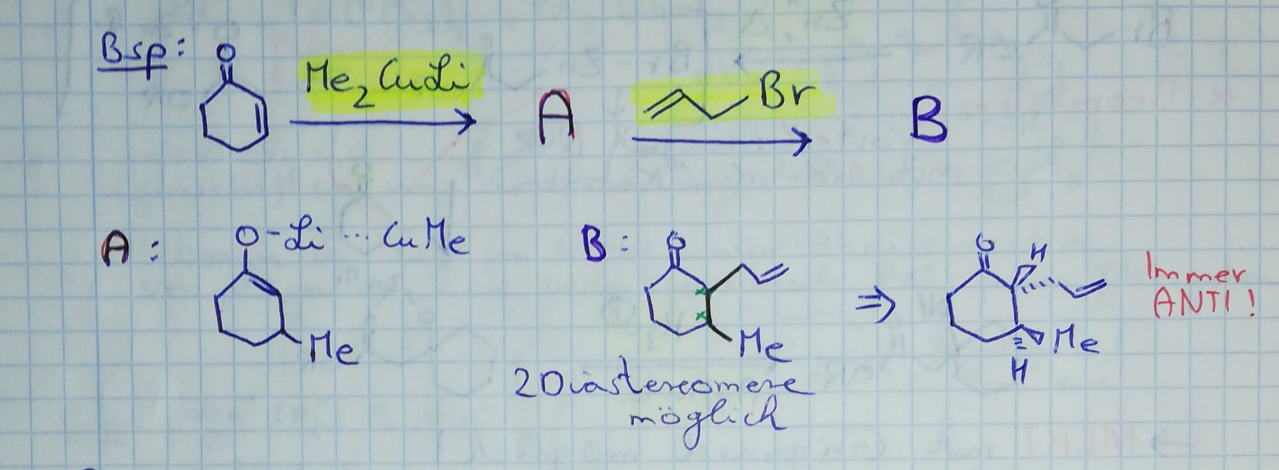 Bsp:
O
Me₂CuLi
A
Br
B
A:
O-Li ··· CuMe
Me
B:
O
Me
2 Diastereomere
möglich
⇒
O
H
Me
H
Immer
ANTI!